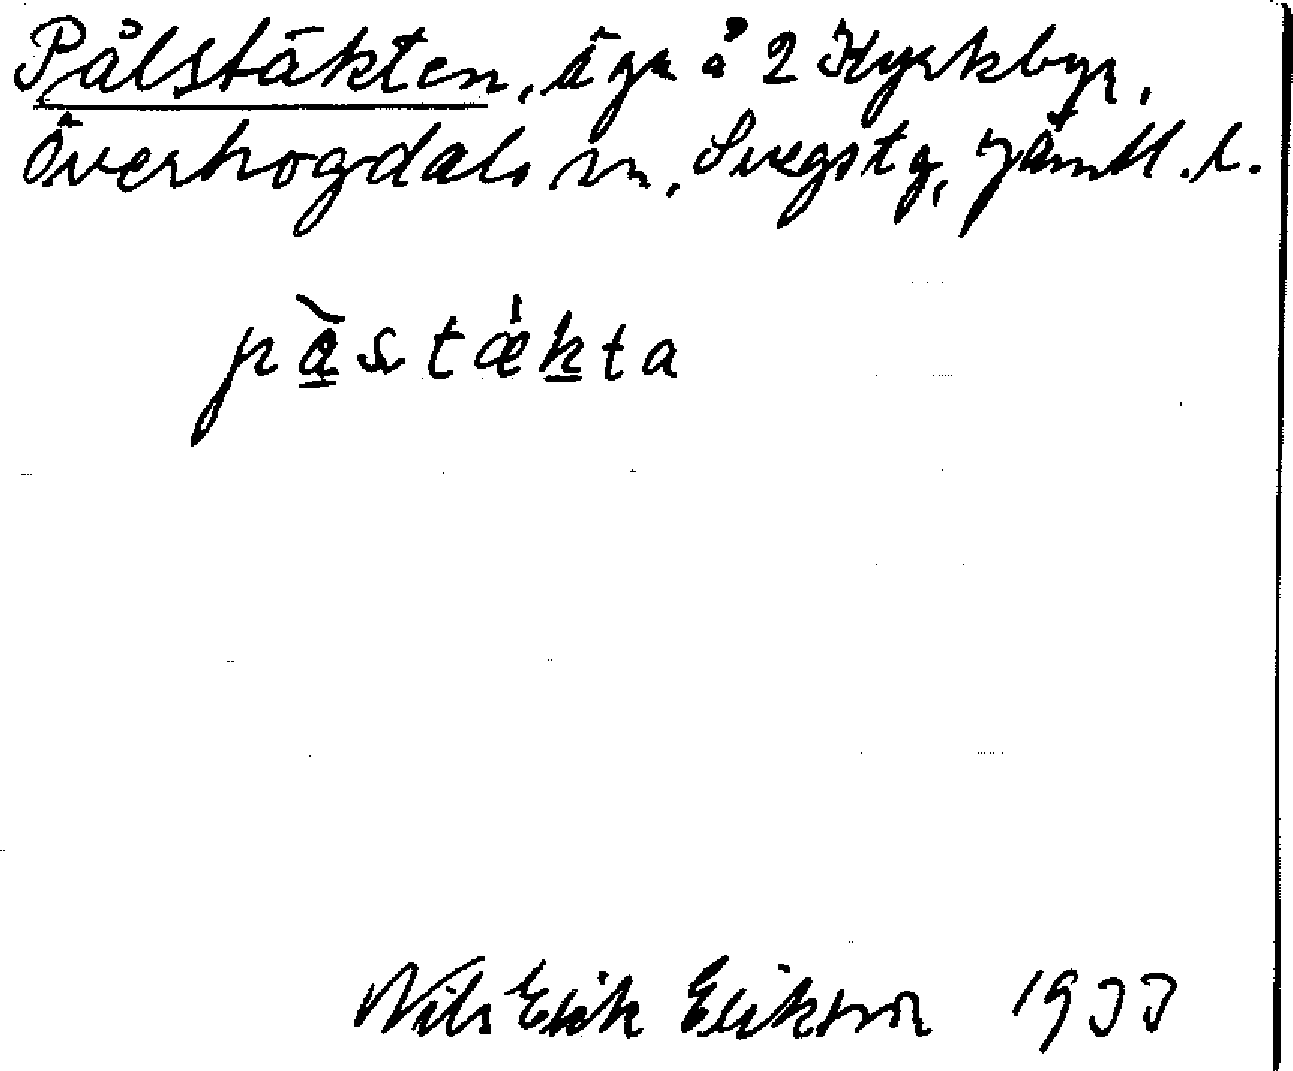 Pålstäkten, äga å 2 Kyrkbyn,
Överhogdals sn, Svegs tg, Jämtl. l.
pàstǽkta
Nils Erik Erikson 1933